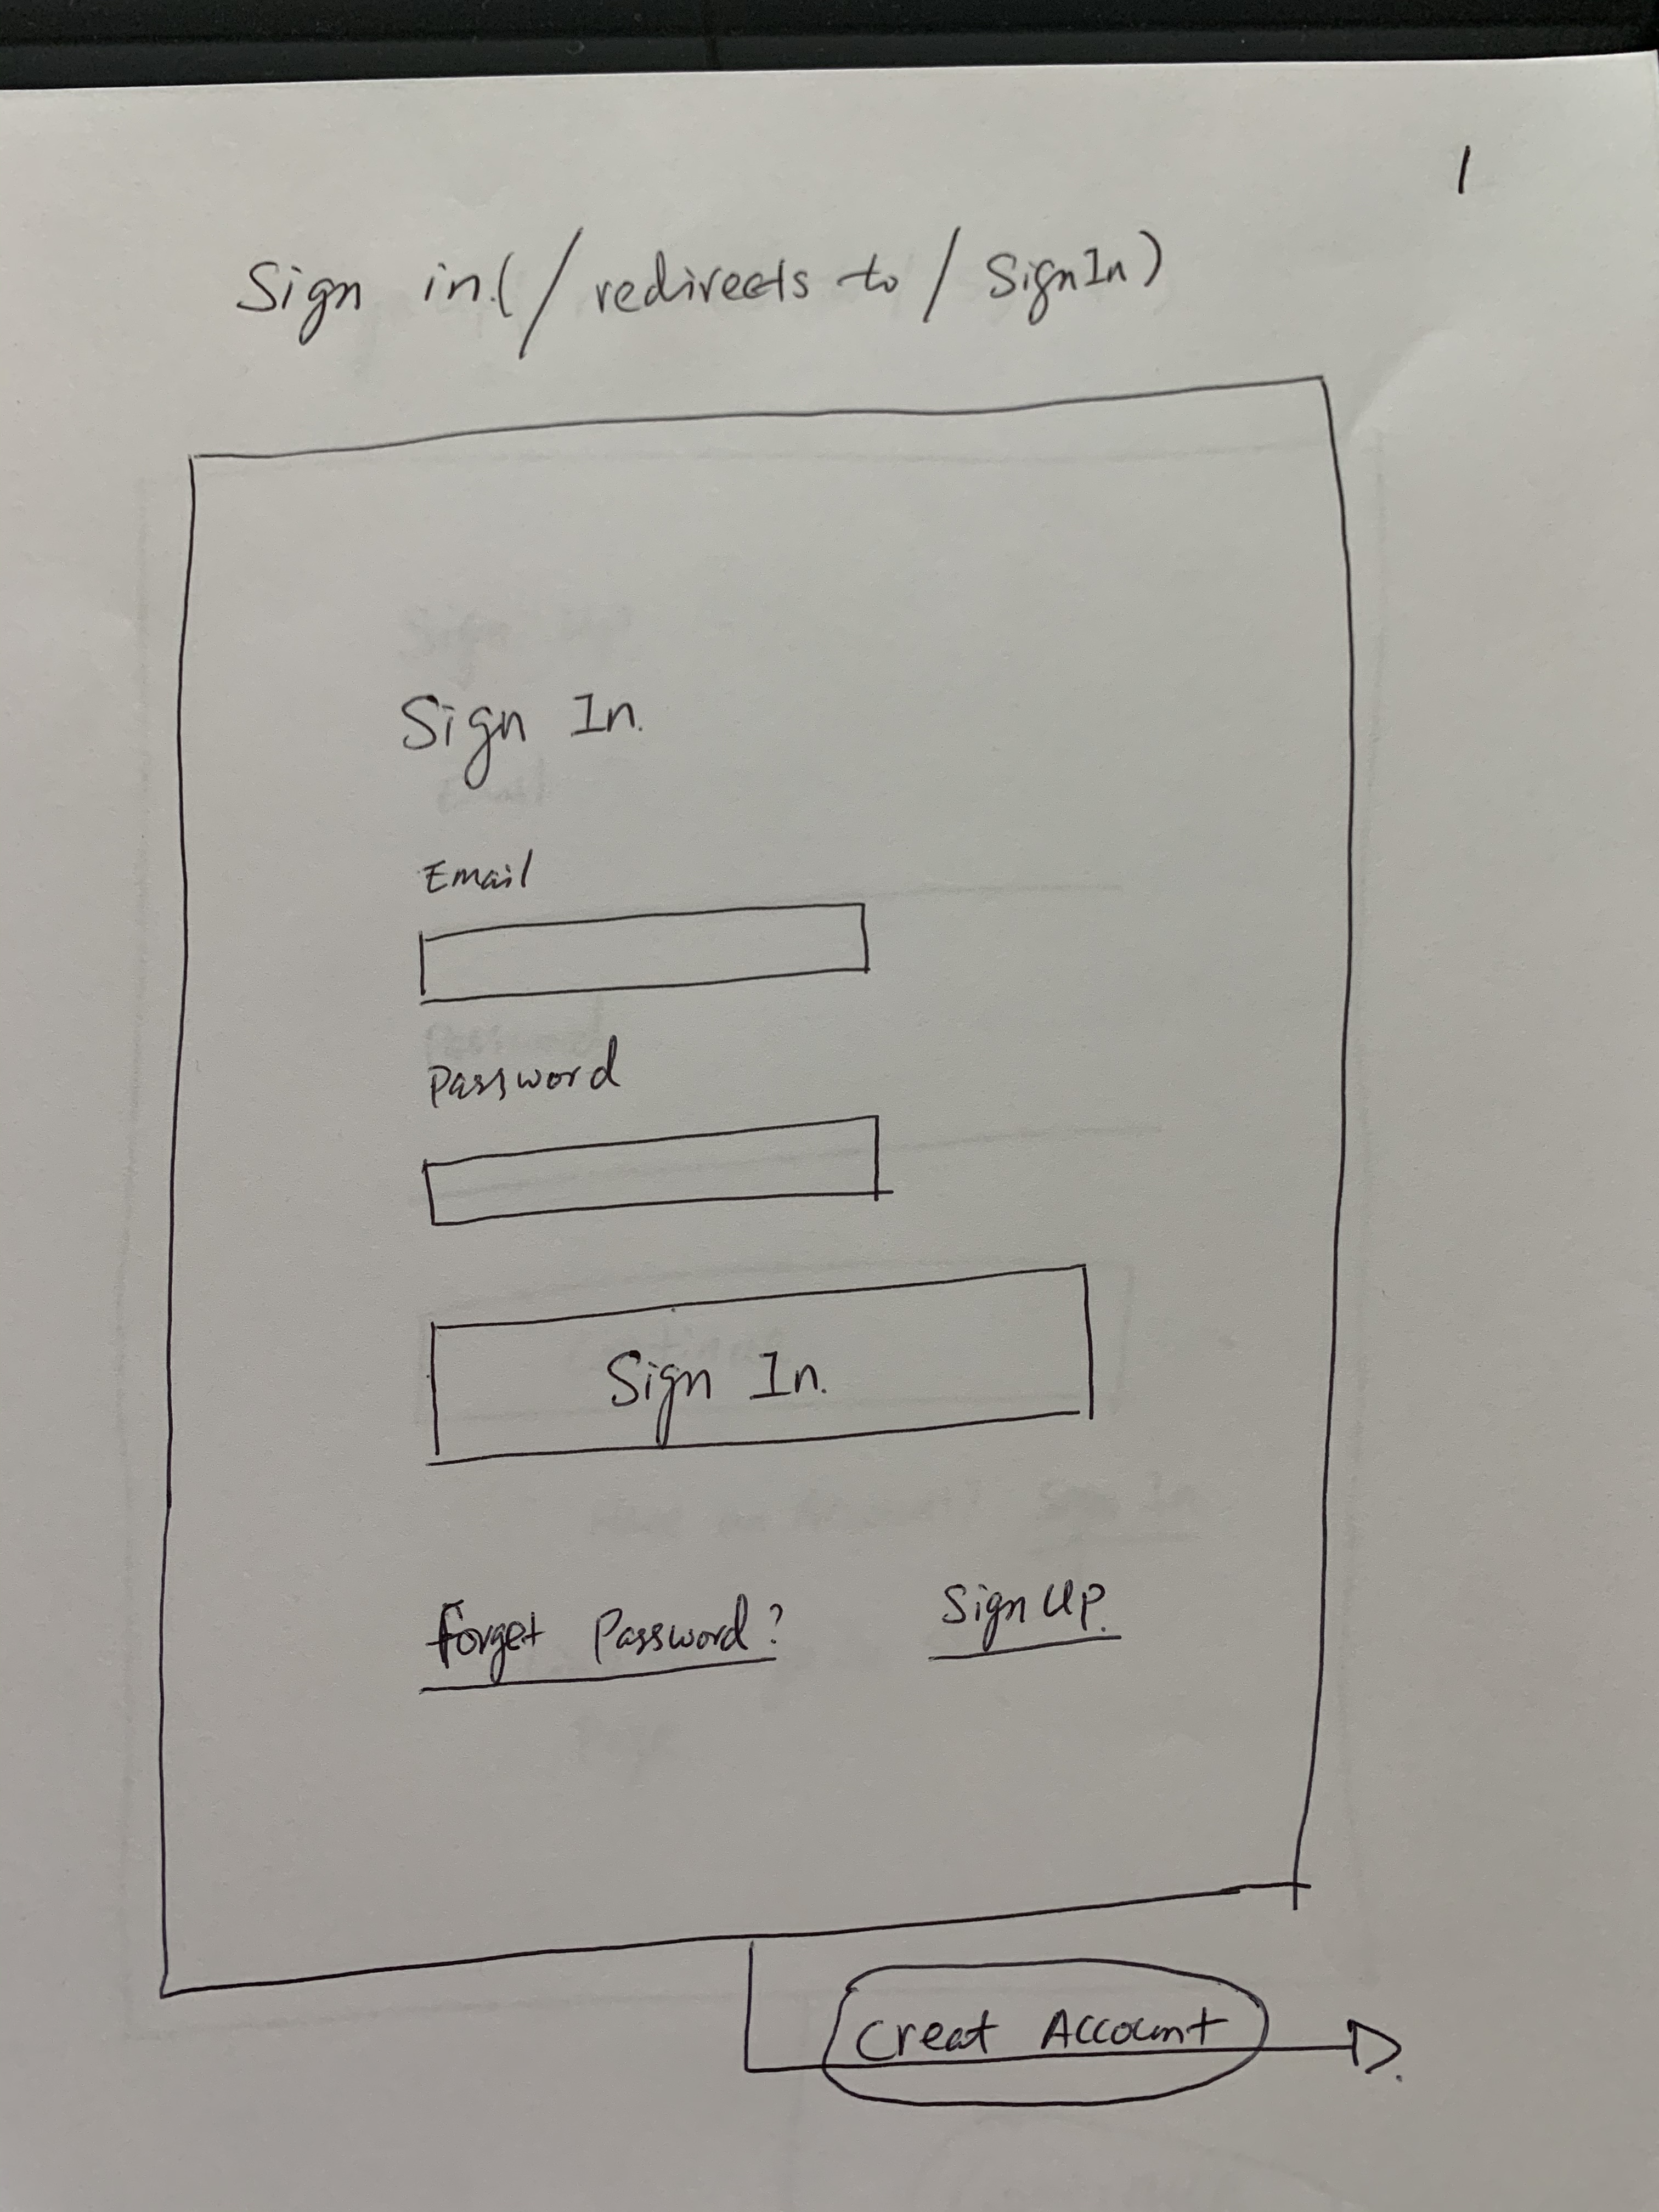 1
Sign in (/ redirects to / SignIn)
Sign In.
Email
Password
Sign In.
Forget Password?
Sign Up.
Creat Account